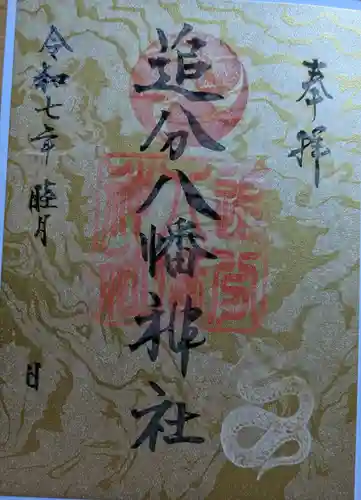 奉拝
追分八幡神社
令和七年睦月 日